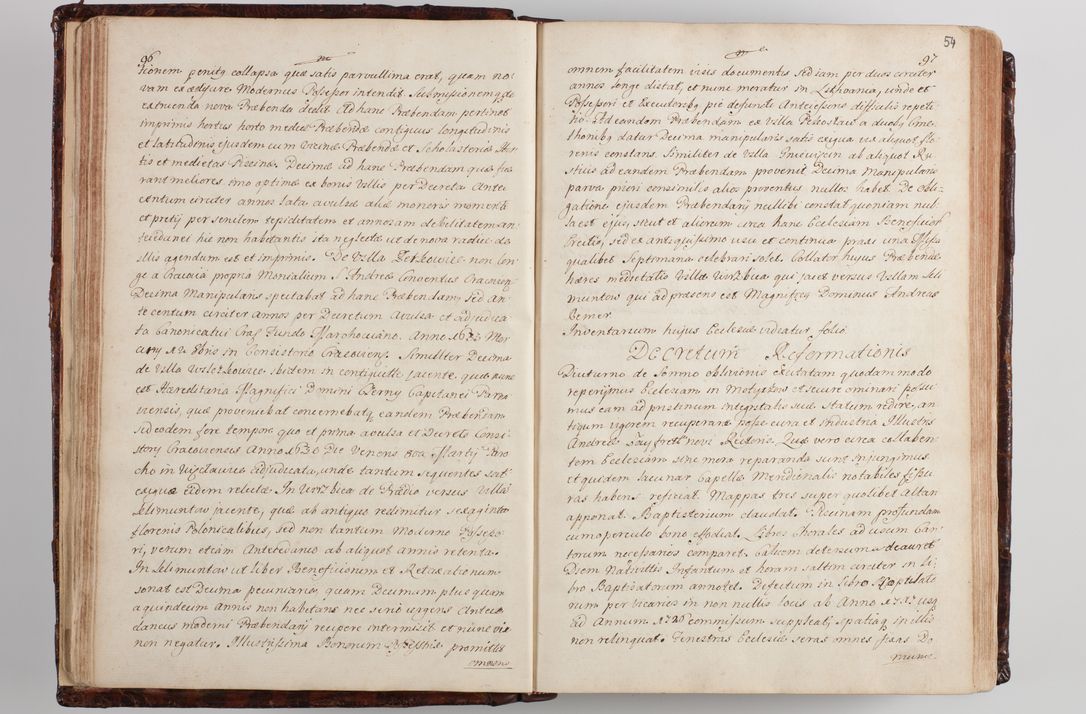 96
tionem penitq collapsa quæ satis parvullima erat, quam no-
vam exædificare Modernus Possessor intendit. Submissionemq de
extruenda nova Præbenda dedit. Ad hanc Præbendam pertinet
imprimis hortus horto mediæ Præbendæ contiguus longitudinis
et latitudinis ejusdem cum vicinæ Præbendæ et Scholasteriæ Hor-
tis et medietas Piscinæ. Decimæ ad hanc Præbendam quæ fue-
rant meliores imo optimæ ex bonis Villis per Decreta Ante
centum circiter annos lata avulsæ aliæ minoris momenti
et pretij per senilem tepiditatem et annosam debilitatem an-
tecedanei hic non habitantis ita neglectæ ut de nova radice de
illis agendum est et imprimis. De Villa Petkowice non lon-
ge a Cracovia propria Monialium S. Andreæ Conventus Cracovien
Decima Manipularis spectabat ad hanc Præbendam, Sed an-
te centum circiter annos per Decretum avulsa et adjudica-
ta Canonicatui Crac Fundo Marchoviano. Anno 1633 Mer-
curij 12 8bris in Consistorio Cracovien. Similiter Decima
de Villa Wilczkowice ibidem in contiguitte jacente quæ nunc
est Hæreditaria Magnifici Domini Czerny Capitanei Parna-
viensis, quæ proveniebat concernebatq eandem Præbendam
sed eodem fere tempore quo et prima avulsa et Decreto Consi-
story Cracoviensis Anno 1636 Die Veneris 10a Martij Paro-
cho in Więcławice adjudicata, unde tantum sequentes sat
exiguæ eidem relictæ. In Wirzbica de Prædio versus Villam
Selimuntow jacente, quæ ab antiquo redimitur sexaginta
florenis Polonicalibus, sed non tantum Moderno Possesso-
ri, verum etiam Antecedaneo ab aliquot annis retenta.
In Selimuntow ut liber Beneficiorum et Retaxationum
sonat est Decima pecuniaria, quam Decimam plus quam
a quindecim annis non habitans nec serio urgens Antece-
daneus moderni Præbendarij recipere intermisit et nunc vix
non negatur. Illustrissima Bonorum Possestrix promittit
omnem
54
97
omnem facilitatem visis documentis sed iam per duos circiter
annos longe distat, et nunc moratur in Lithvania, unde et
Possessori et Executoribq pie defuncti Antecessoris difficilis repeti-
tio. Ad eandem Præbendam ex Villa Peckoslaw a duobq Cme-
thonibq datur Decima manipularis satis exigua vix aliquot flo-
renis constans. Similiter de Villa Gniewięcin ab aliquot Ru-
sticis ad eandem Præbendam provenit Decima Manipularis
parva priori consimilis alios proventus nullos habet. De obli-
gatione ejusdem Præbendarij nullibi constat quoniam nul-
la est ejus, sicut et aliorum circa hanc Ecclesiam Beneficiorum
Erectio, sed ex antiquissimo usu et continua praxi una Missa
qualibet Septimana celebrari solet. Collator hujus Præbendæ
hæres medietatis Villæ Wirzbica qui jacet versus Villam Seli-
muntow qui ad præsens est Magnificq Dominus Andreas
Bemer
Inventarium hujus Ecclesiæ videatur folio.
Decretum Reformationis
Diuturno de Somno oblivionis excitatam quodammodo
reperijmus Ecclesiam in Motycżow et secure ominari possu-
mus eam ad pristinum integritatis suæ Statum redire, an-
tiquum vigorem recuperare posse cura et industria Illustris
Andreæ novi Rectoris. Quæ vero circa collaben-
tem Ecclesiam sine mora reparanda sunt injungimus
et quidem lacunar Capellæ Meridionalis notabiles fissu-
ras habens reficiat. Mappas tres super quolibet Altari
apponat. Baptisterium claudat. Piscinam profundam
cum operculo bono effodiat. Libros Chorales ad usum Can-
torum necessarios comparet. Calicem detersum deauret
Diem Nativitis Infantum et horam saltim circiter in Li-
bro Baptisatorum annotet. Defectum in libro Copulato-
rum per Vicarios in non nullis locis ab Anno 1717 usq
ad Annum 1720 commissum suppleat, spatiaq in illis
non relinquat. Fenestras Ecclesiæ seras omnes fixas Do-